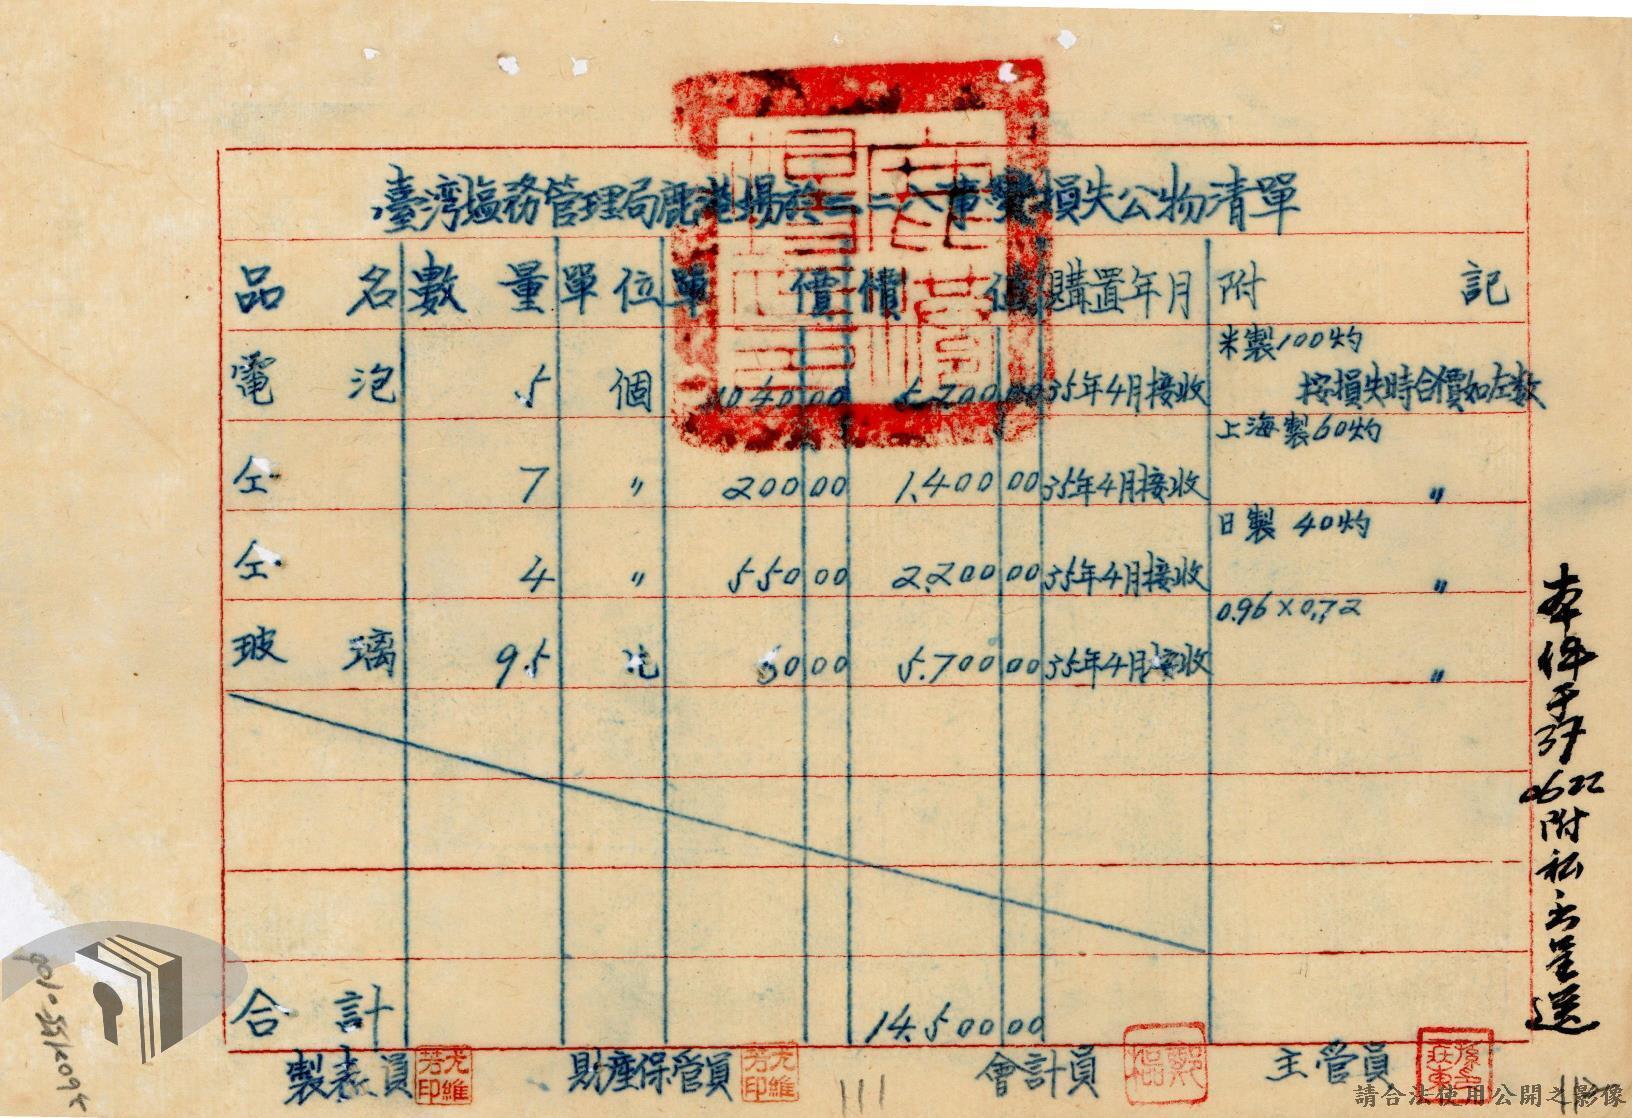 臺湾塩務管理局鹿港場於二二八事變損失公物清單
品名 數量 單位 單價 價值 購置年月 附記
電泡 5 個 1040 00 5.200 00 35年4月接收 米製100灼 按損失時合價如左数
仝 7 〃 200 00 1.400 00 35年4月接收 上海製60灼 〃
仝 4 〃 550 00 2.200 00 35年4月接收 日製 40灼 〃
玻璃 95 60 00 5.700 00 35年4月接收 0.96×0.72 〃
合計 14.500 00
製表員 尤維芳印 財產保管員 尤維芳印 會計員 主管員
鹿港場
111
請合法使用公開之影像